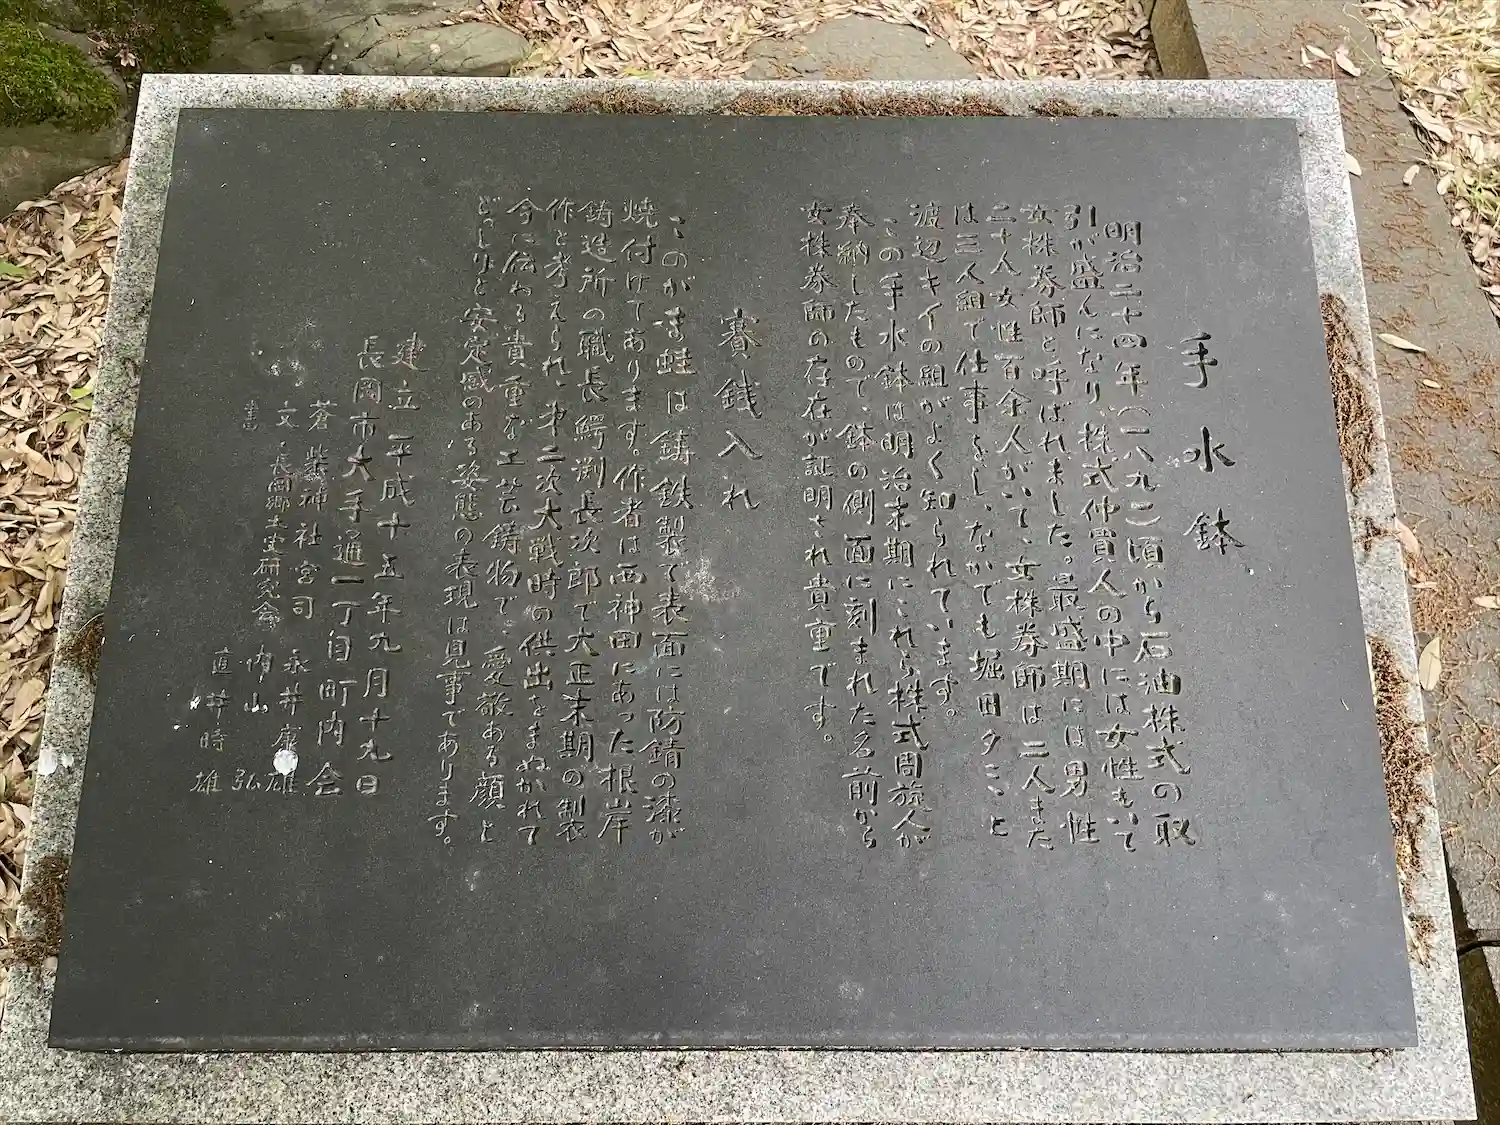 手水鉢
明治二十四年(一八九一)頃から石油株式の取
引が盛んになり、株式仲買人の中には女性もいて
女株券師と呼ばれました。最盛期には男性
二十人女性百余人がいて、女株券師は二人また
は三人組で仕事をし、なかでも堀田タミと
渡辺キイの組がよく知られています。
この手水鉢は明治末期にこれら株式周旋人が
奉納したもので、鉢の側面に刻まれた名前から
女株券師の存在が証明され貴重です。
賽銭入れ
このがま蛙は鋳鉄製で表面には防錆の漆が
焼付けてあります。作者は西神田にあった根岸
鋳造所の職長鰐渕長次郎で大正末期の製
作と考えられ、第二次大戦時の供出をまぬかれて
今に伝わる貴重な工芸鋳物で、愛敬ある顔と
どっしりと安定感のある姿態の表現は見事であります。
建立 平成十五年九月十九日
長岡市大手通一丁目町内会
蒼紫神社宮司 永井康雄
文 長岡郷土史研究会 内山弘
書 直井時雄